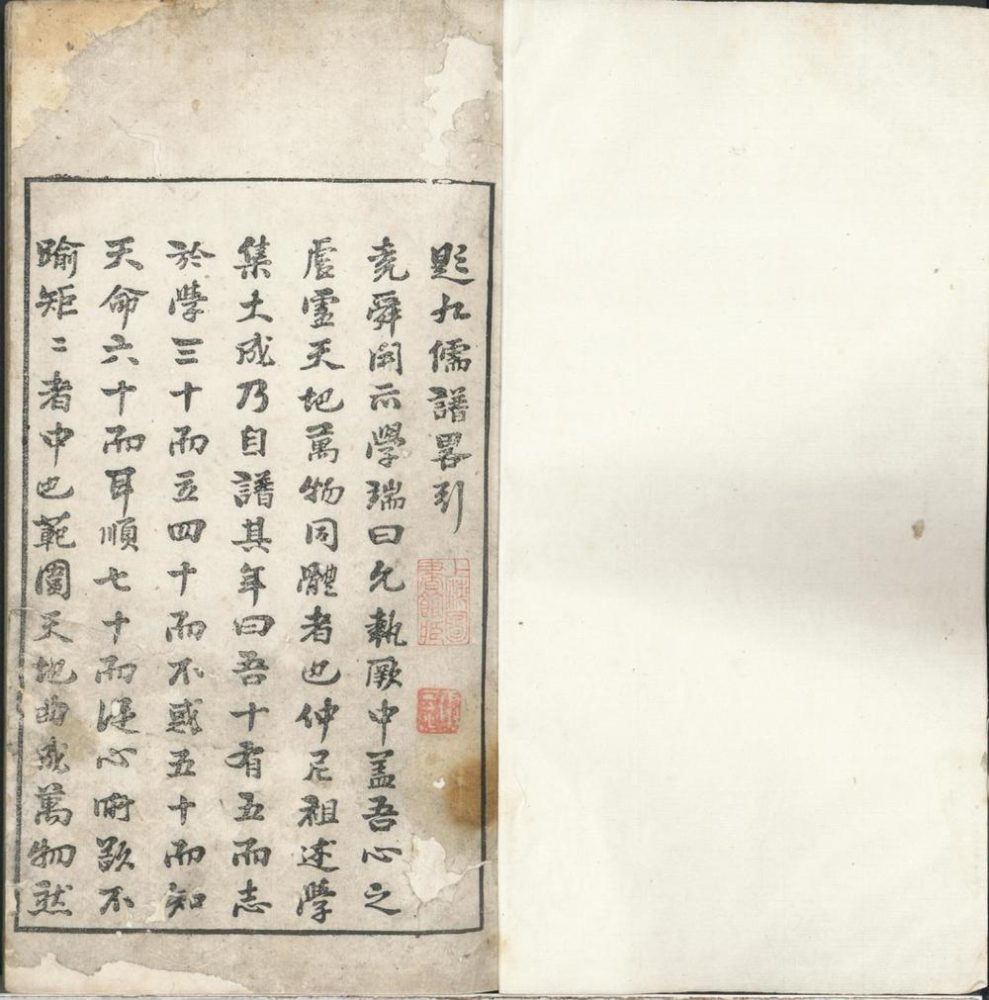 題九儒譜畧引
堯舜開示學端曰允執厥中蓋吾心之
虛靈天地萬物同體者也仲尼祖述學
集大成乃自譜其年曰吾十有五而志
於學三十而立四十而不惑五十而知
天命六十而耳順七十而從心所欲不
踰矩二者中也範圍天地曲成萬物然
上海圖書館藏